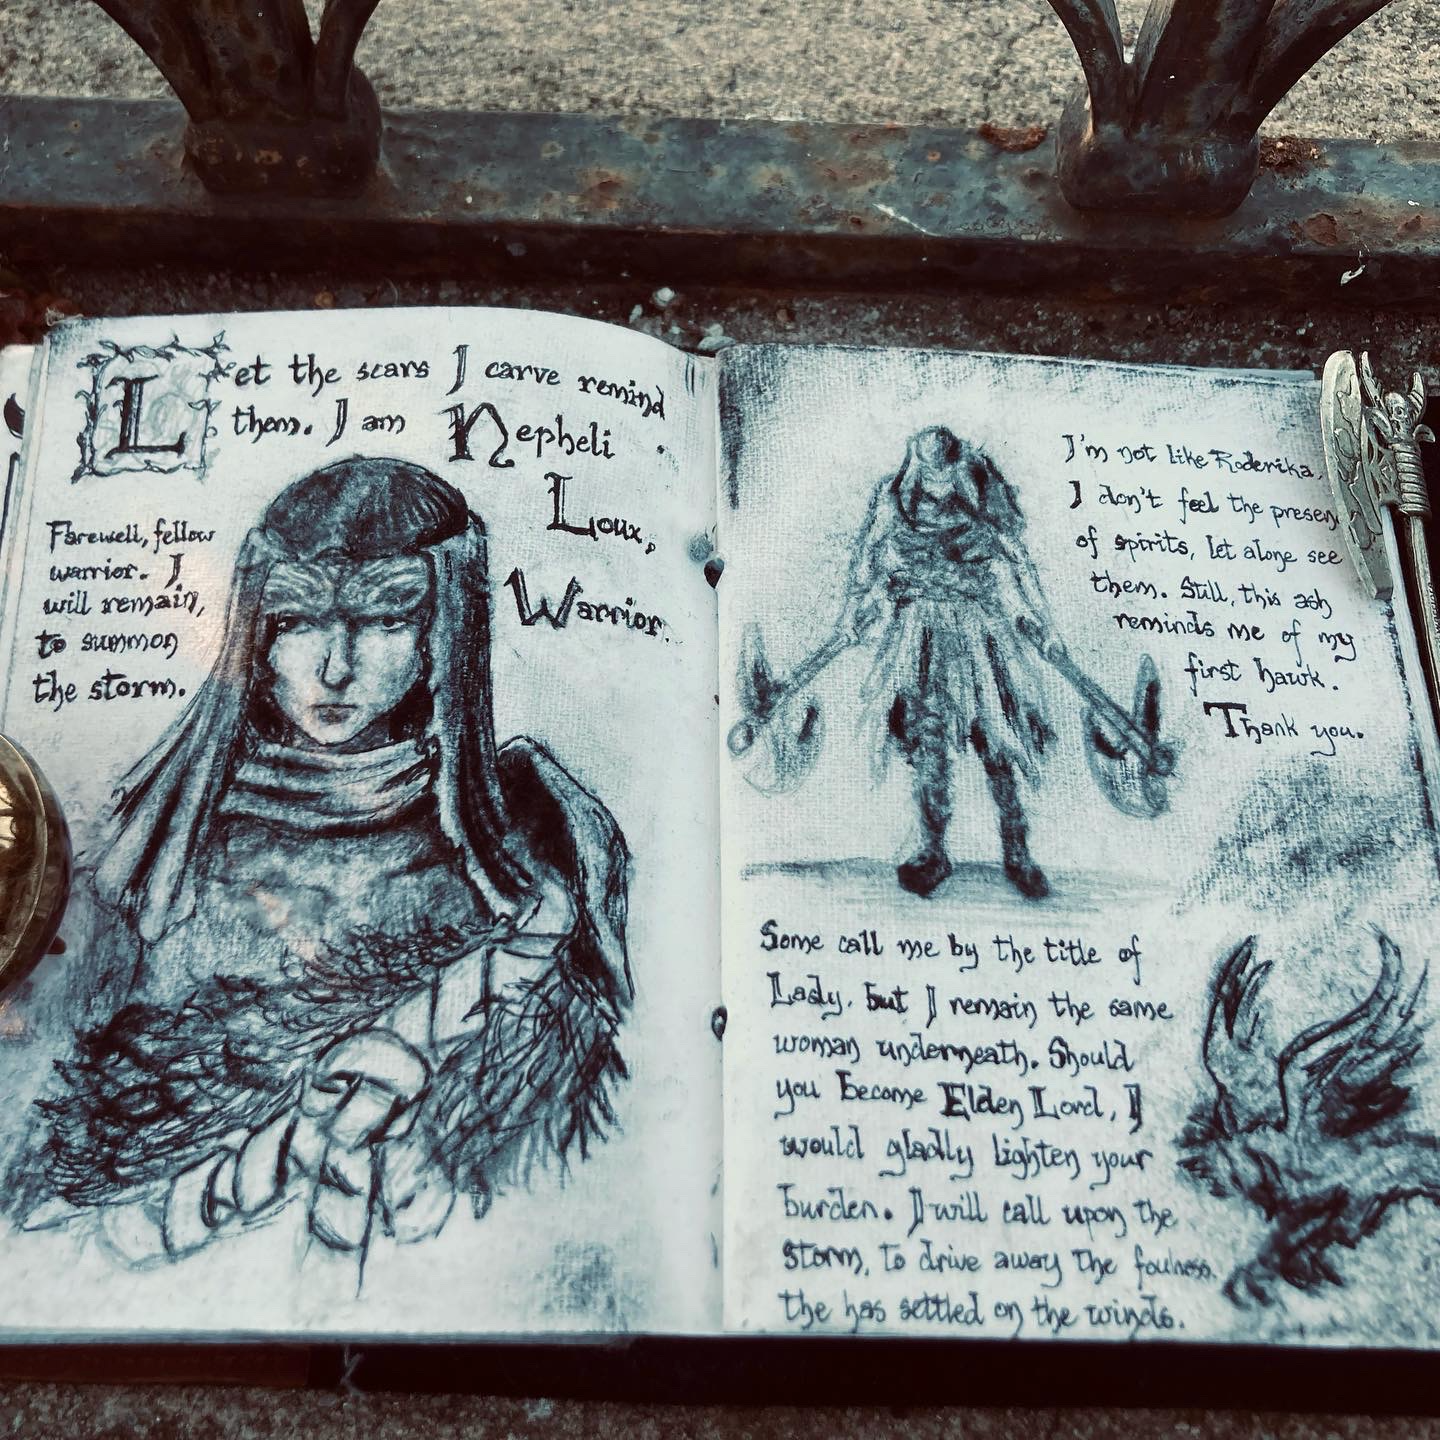 Let the scars I carve remind
them. I am Nepheli
Loux,
Warrior.
Farewell, fellow
warrior. I
will remain,
to summon
the storm.
I'm not like Roderika,
I don't feel the presen
of spirits, let alone see
them. Still, this ash
reminds me of my
first hawk.
Thank you.
Some call me by the title of
Lady, but I remain the same
woman underneath. Should
you become Elden Lord, I
would gladly lighten your
burden. I will call upon the
storm, to drive away the foulness.
the has settled on the winds.